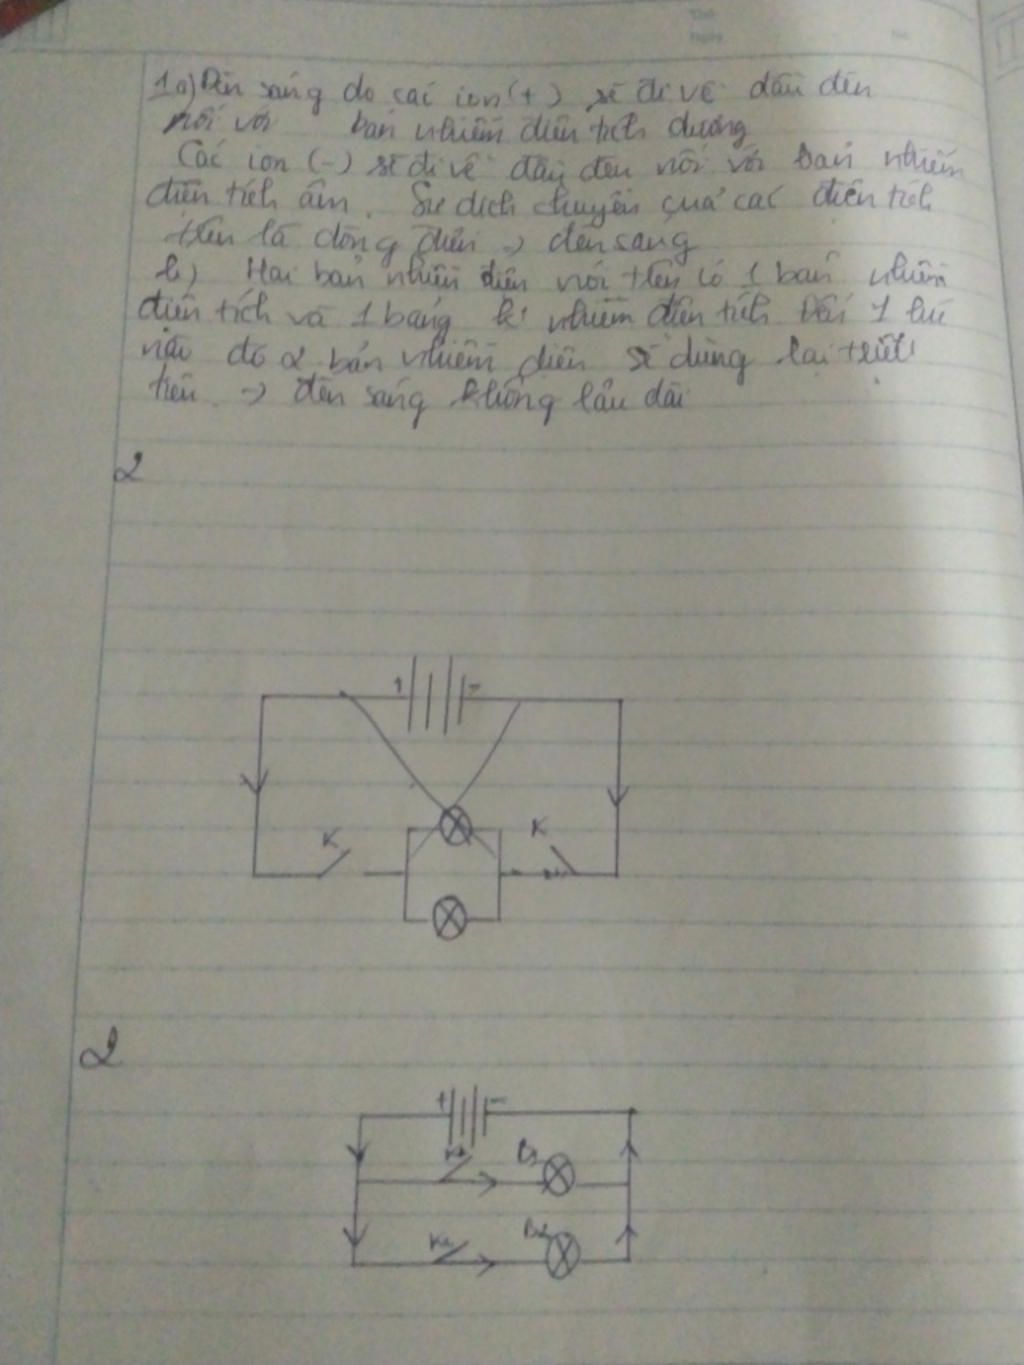 1a) Đèn sáng do các ion (+) sẽ đi về dấu đèn
nối với bản nhiễm điện tích dương
Các ion (-) sẽ đi về dây đèn nối với bản nhiễm
điện tích âm. Sự dịch chuyển của các điện tích
trên là dòng điện -> đèn sáng
b) Hai bản nhiễm điện nói trên có 1 bản nhiễm
điện tích và 1 bảng k° nhiễm điện tích đến 1 lúc
nào đó 2 bản nhiễm điện sẽ dừng lại
tiên -> đèn sáng không lâu dài
2
+ -
K K
2
+ -
K1 Đ1
K2 Đ2